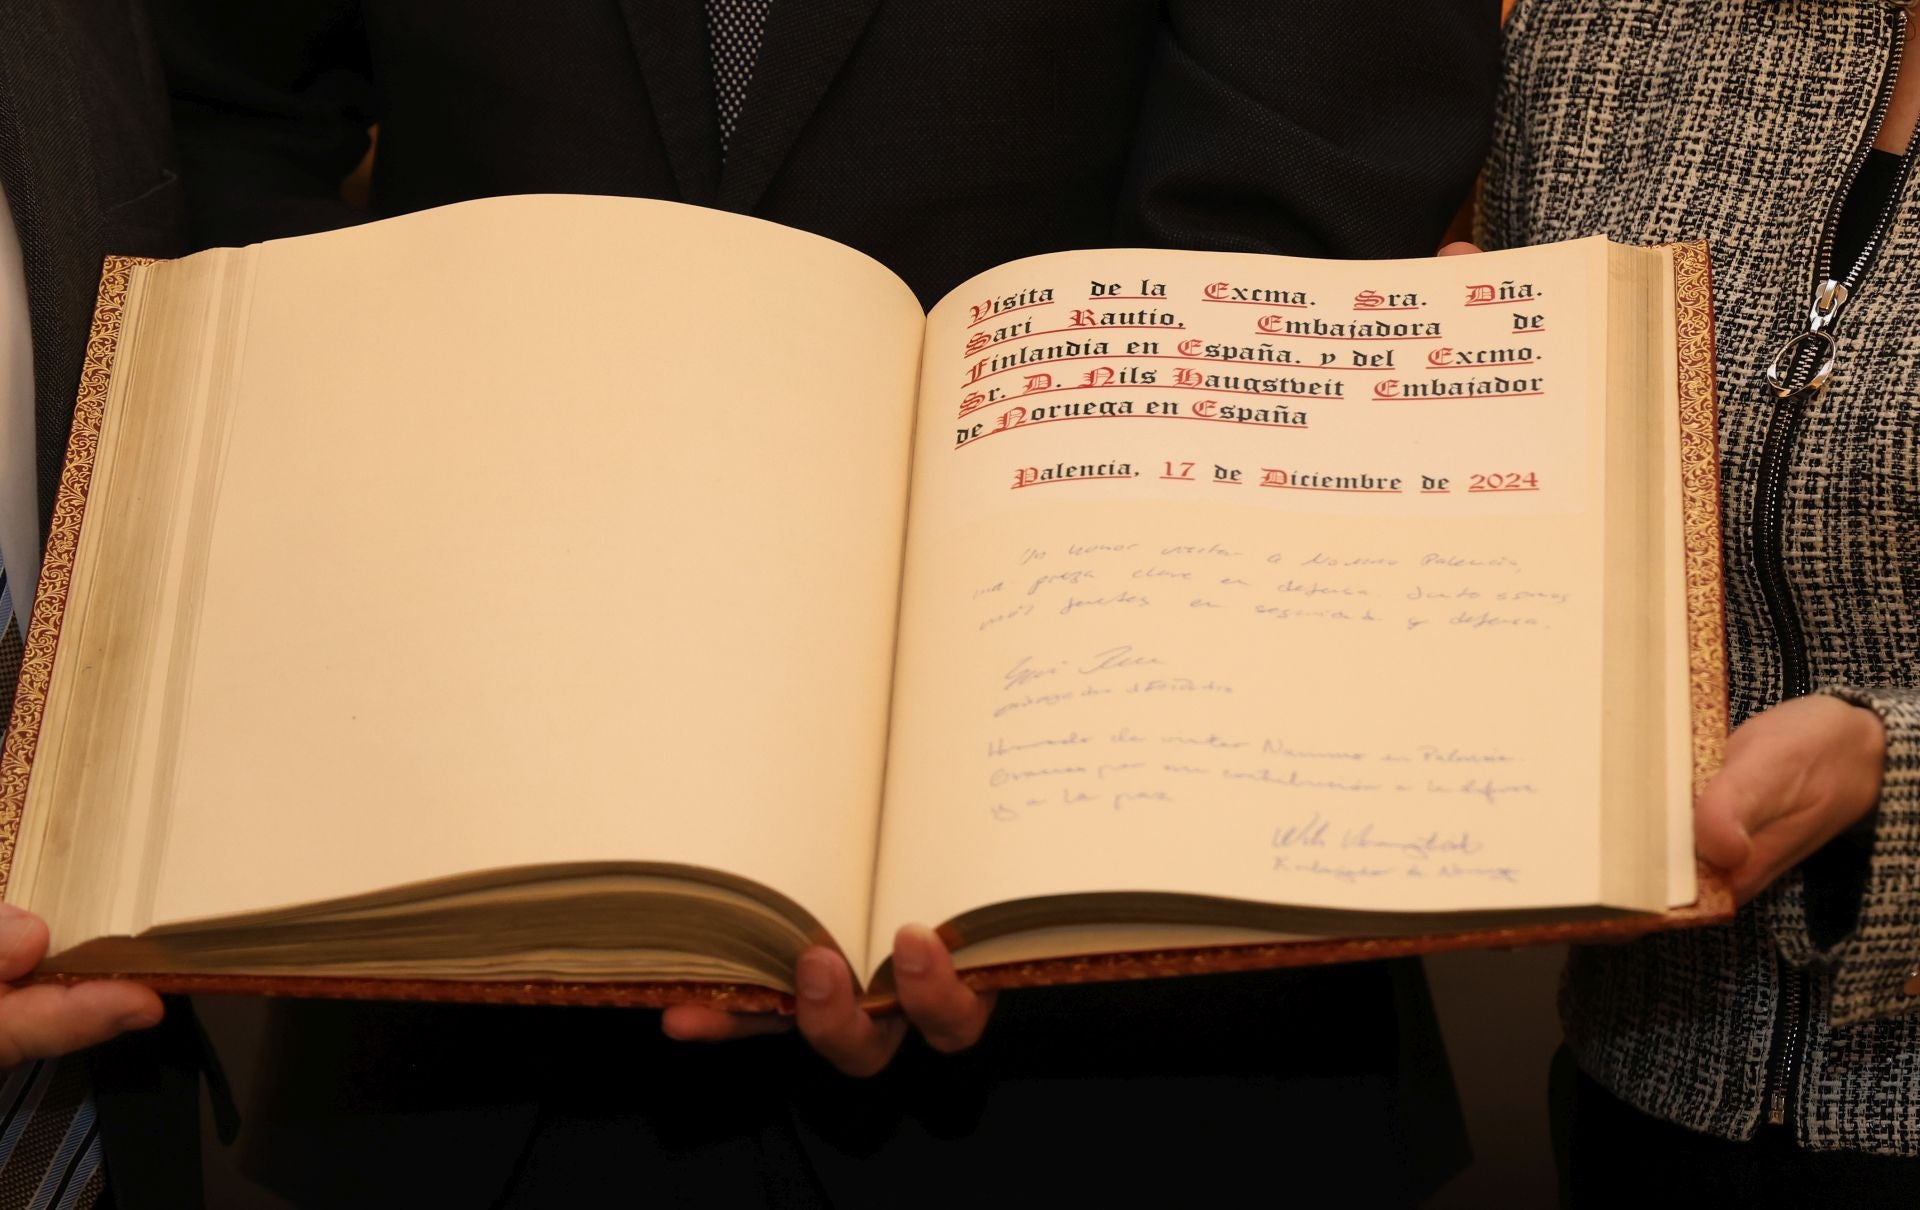 Visita de la Excma. Sra. Dña.
Sari Rautio, Embajadora de
Finlandia en España. y del Excmo.
Sr. D. Nils Haugstveit Embajador
de Noruega en España
Palencia, 17 de Diciembre de 2024
Un honor visitar a Nammo Palencia,
una pieza clave en defensa. Junto somos
más fuertes en seguridad y defensa.
Honrado de visitar Nammo en Palencia.
Gracias por su contribución a la defensa
y a la paz
Embajador de Noruega